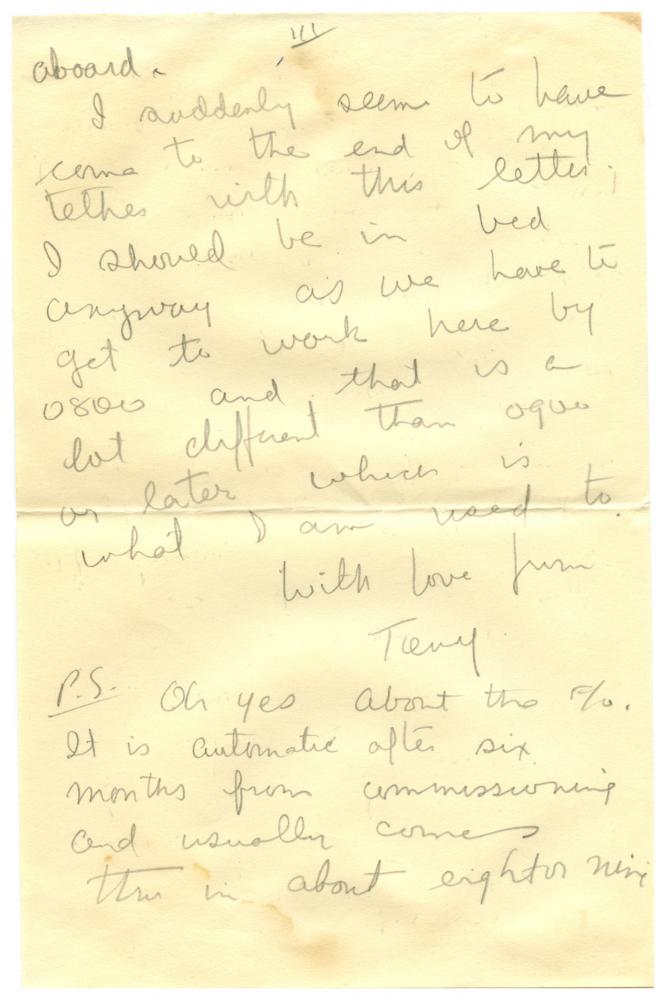 III
aboard.
I suddenly seem to have
come to the end of my
tether with this letter.
I should be in bed
anyway as we have to
get to work here by
0800 and that is a
lot different than 0900
or later which is
what I am used to.
With love from
P.S. Oh yes about the F/O.
It is automatic after six
months from commissioning
and usually comes
thru in about eight or nine